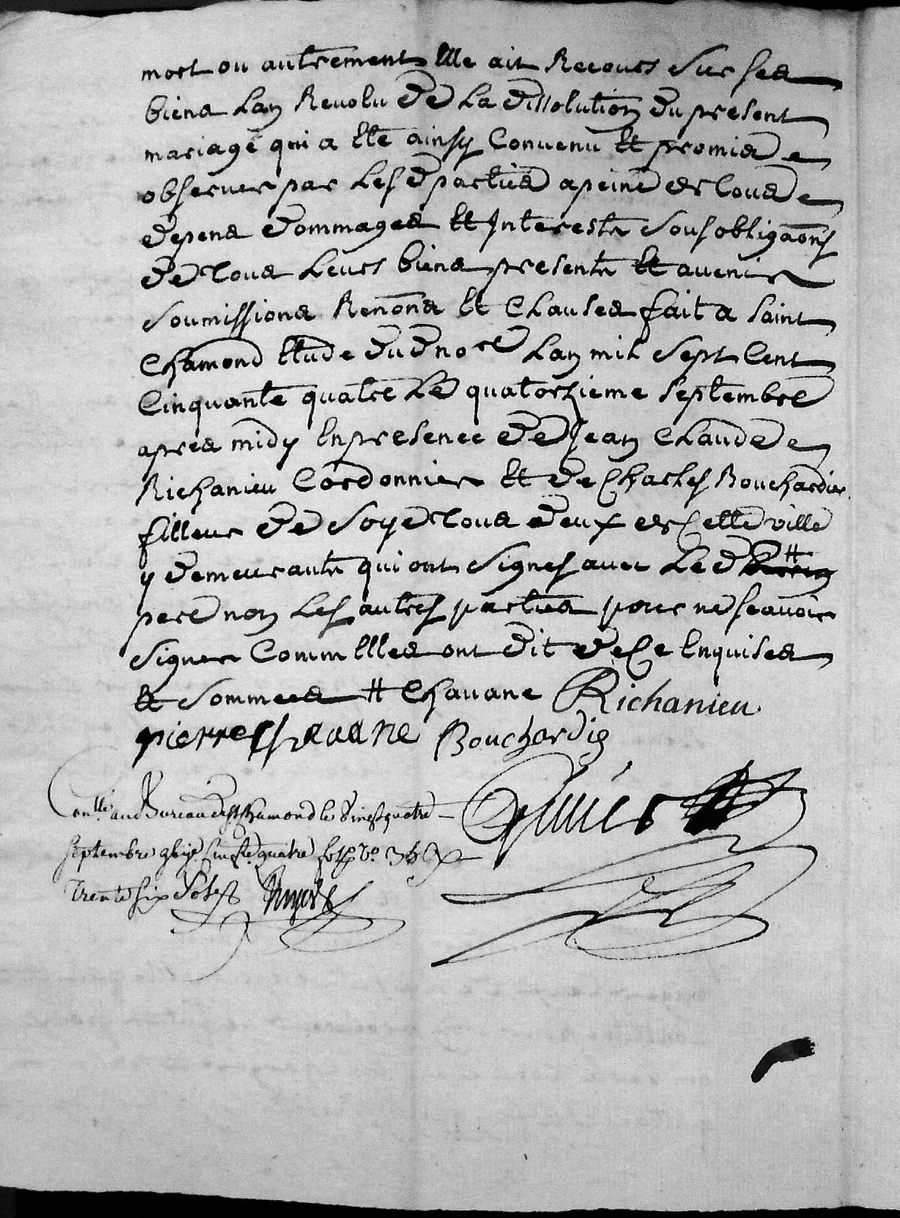 mort ou autrement Elle ait Recours sur ses
biens Lan Revolu De La Dissolution Du present
mariage qui a Ete ainsy Convenu Et promis
observer par Les D parties a peine de tous
Depens Dommages Et Interests sous obligaons
De tous Leurs biens presents Et avenir
soumissions Renons Et Clauses fait a saint
Chamond Etude Du D nore Lan mil sept Cent
Cinquante quatre Le quatorzieme septembre
apres midy En presence De Jean Claude
Richanieu Cordonnier Et De Charles Bouchardier
filleur De Soye tous Deux de Cette ville
y Demeurants qui ont signes avec Le D #
pere non Les autres parties pour ne sçavoir
signer Comm Elles ont Dit De Ce Enquises
Et sommees # Chavane Richanieu
pierre Chavane Bouchardie
Conllé au Bureau de St Chamond le vinest quatre
septembre gbije Cinqte quatre fo Vo 36
Trente six sols